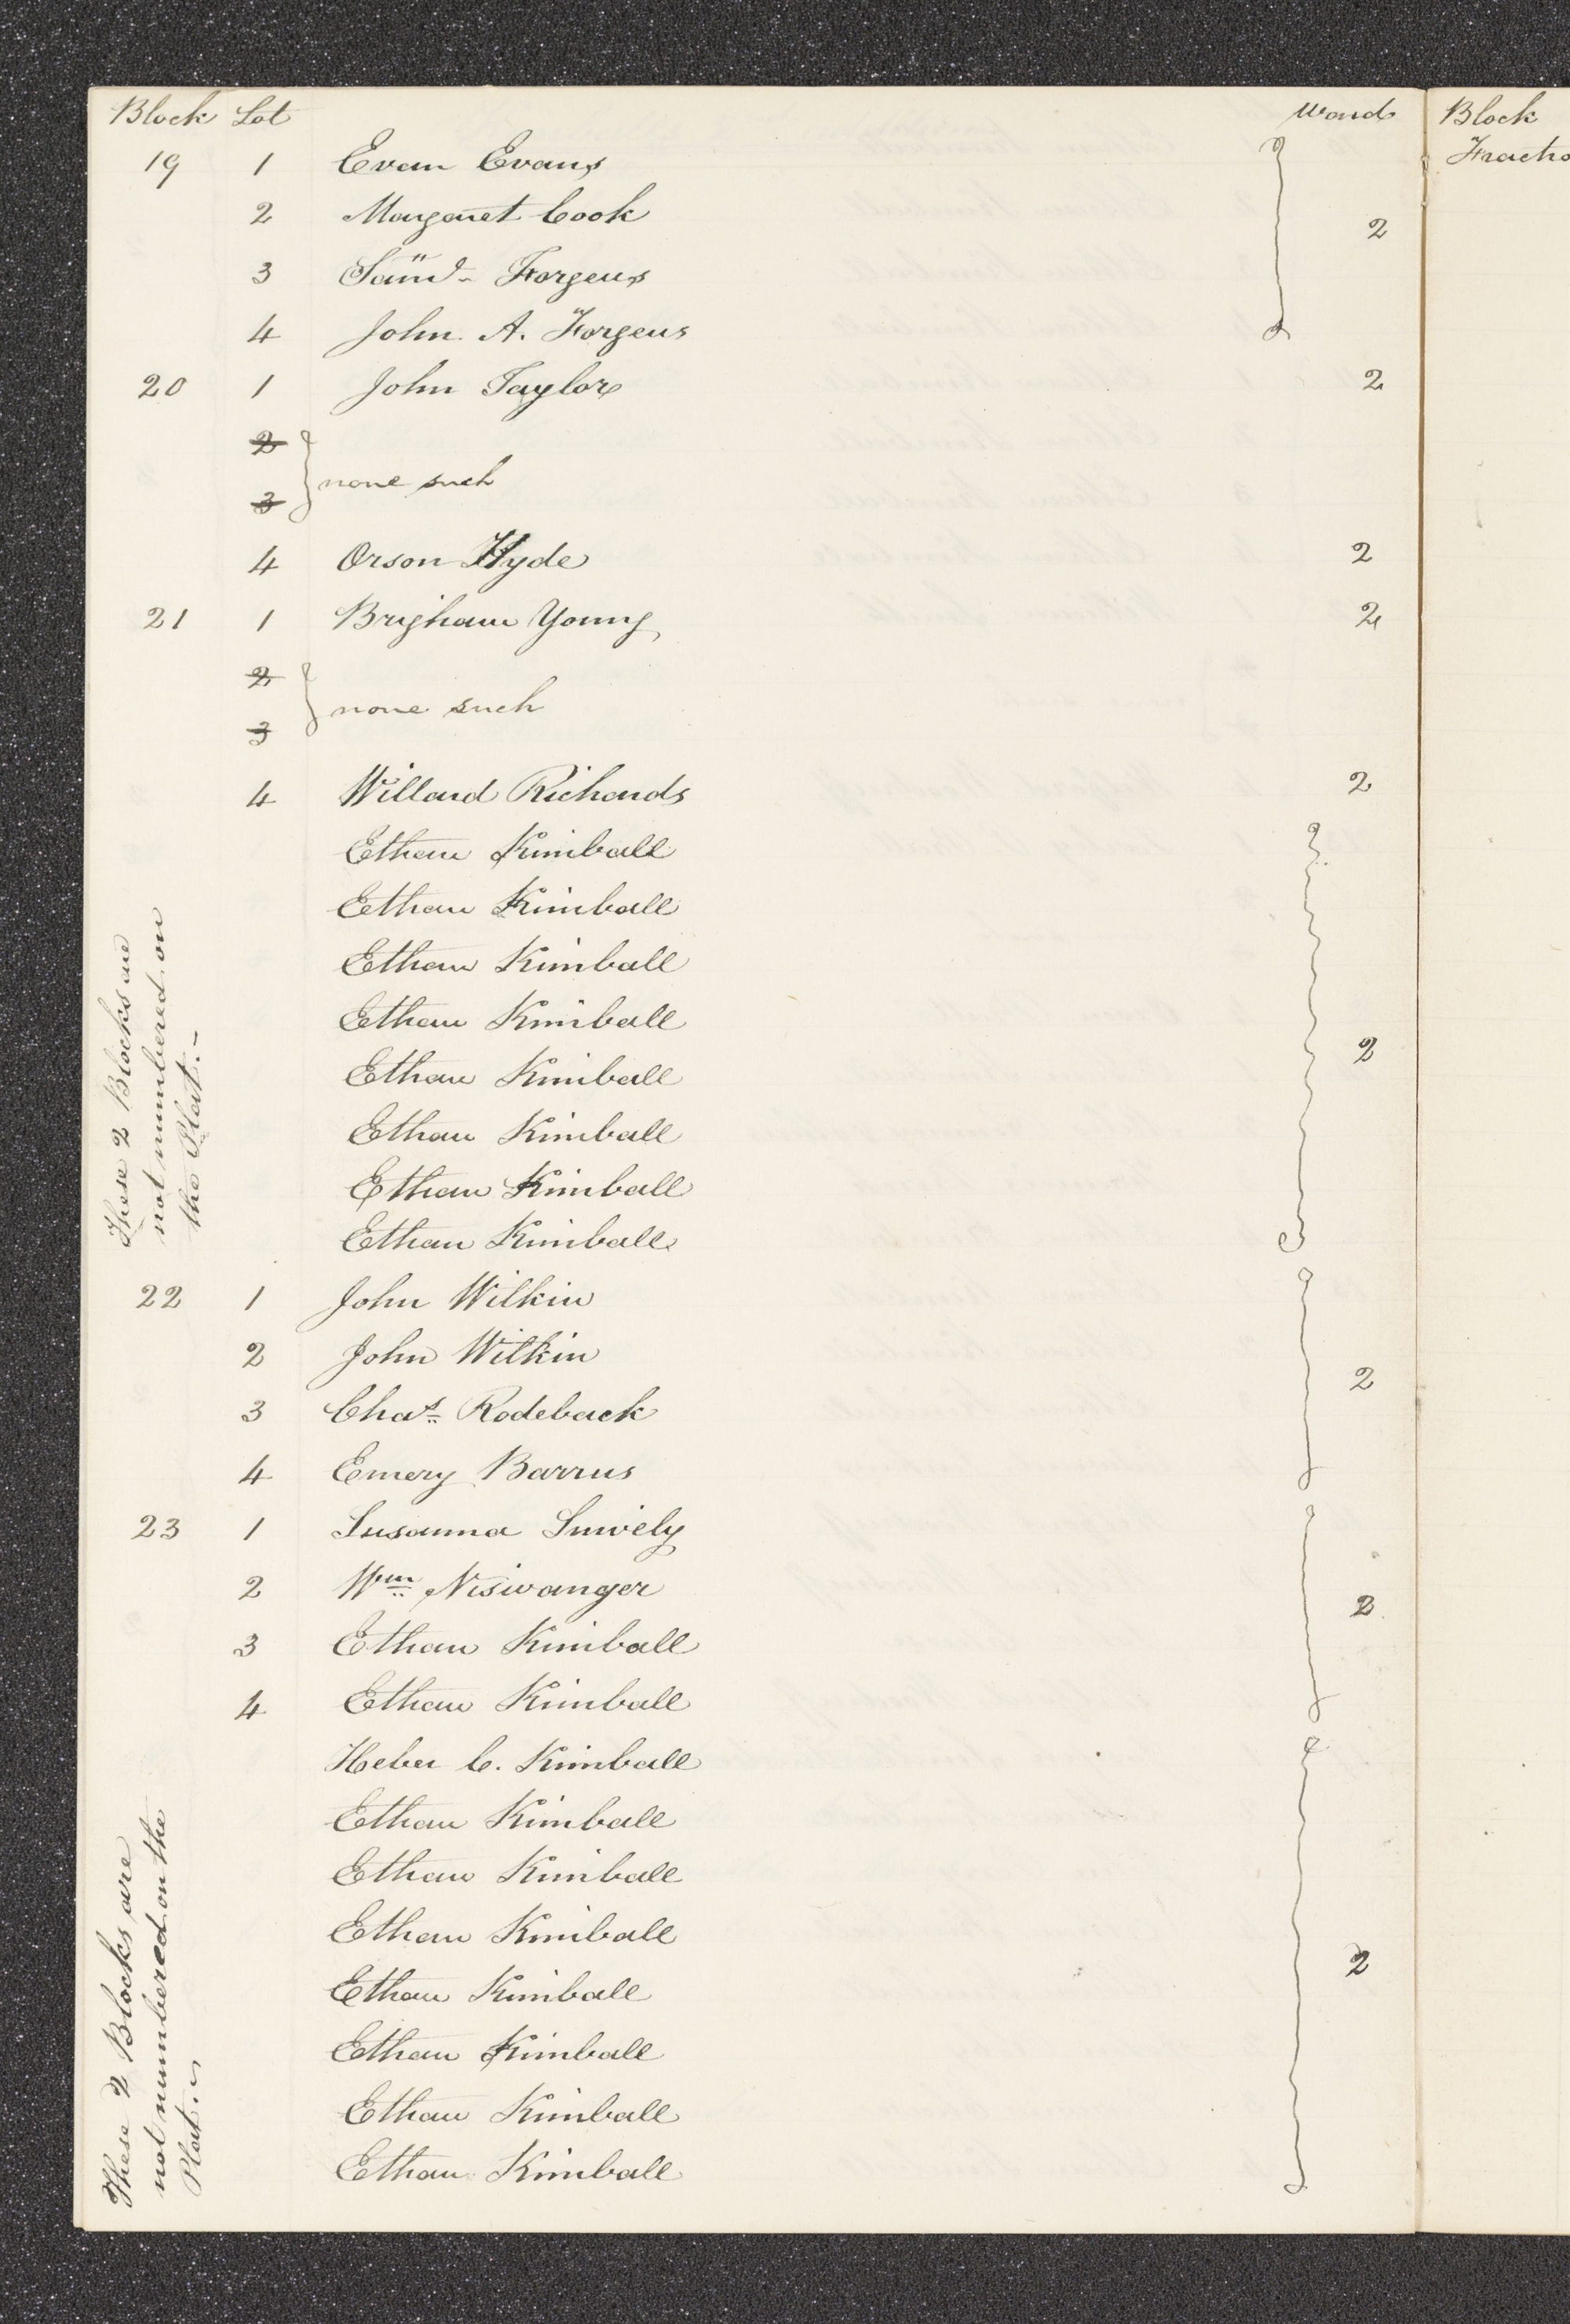 Block Lot Ward
19 1 Evan Evans
2 Margaret Cook 2
3 Saml. Forgeus
4 John A. Forgeus
20 1 John Taylor 2
2
none such
3
4 Orson Hyde 2
21 1 Brigham Young 2
2
none such
3
4 Willard Richards 2
Ethan Kimball
Ethan Kimball
Ethan Kimball
Ethan Kimball
Ethan Kimball 2
Ethan Kimball
Ethan Kimball
Ethan Kimball
These 2 Blocks are
not numbered on
the Plat.-
22 1 John Wilkin
2 John Wilkin 2
3 Chas. Rodeback
4 Emery Barrus
23 1 Susanna Snively
2 Wm. Niswanger 2
3 Ethan Kimball
4 Ethan Kimball
Heber C. Kimball
Ethan Kimball
Ethan Kimball
Ethan Kimball
Ethan Kimball 2
Ethan Kimball
Ethan Kimball
Ethan Kimball
These 2 Blocks are
not numbered on the
Plat.
Block